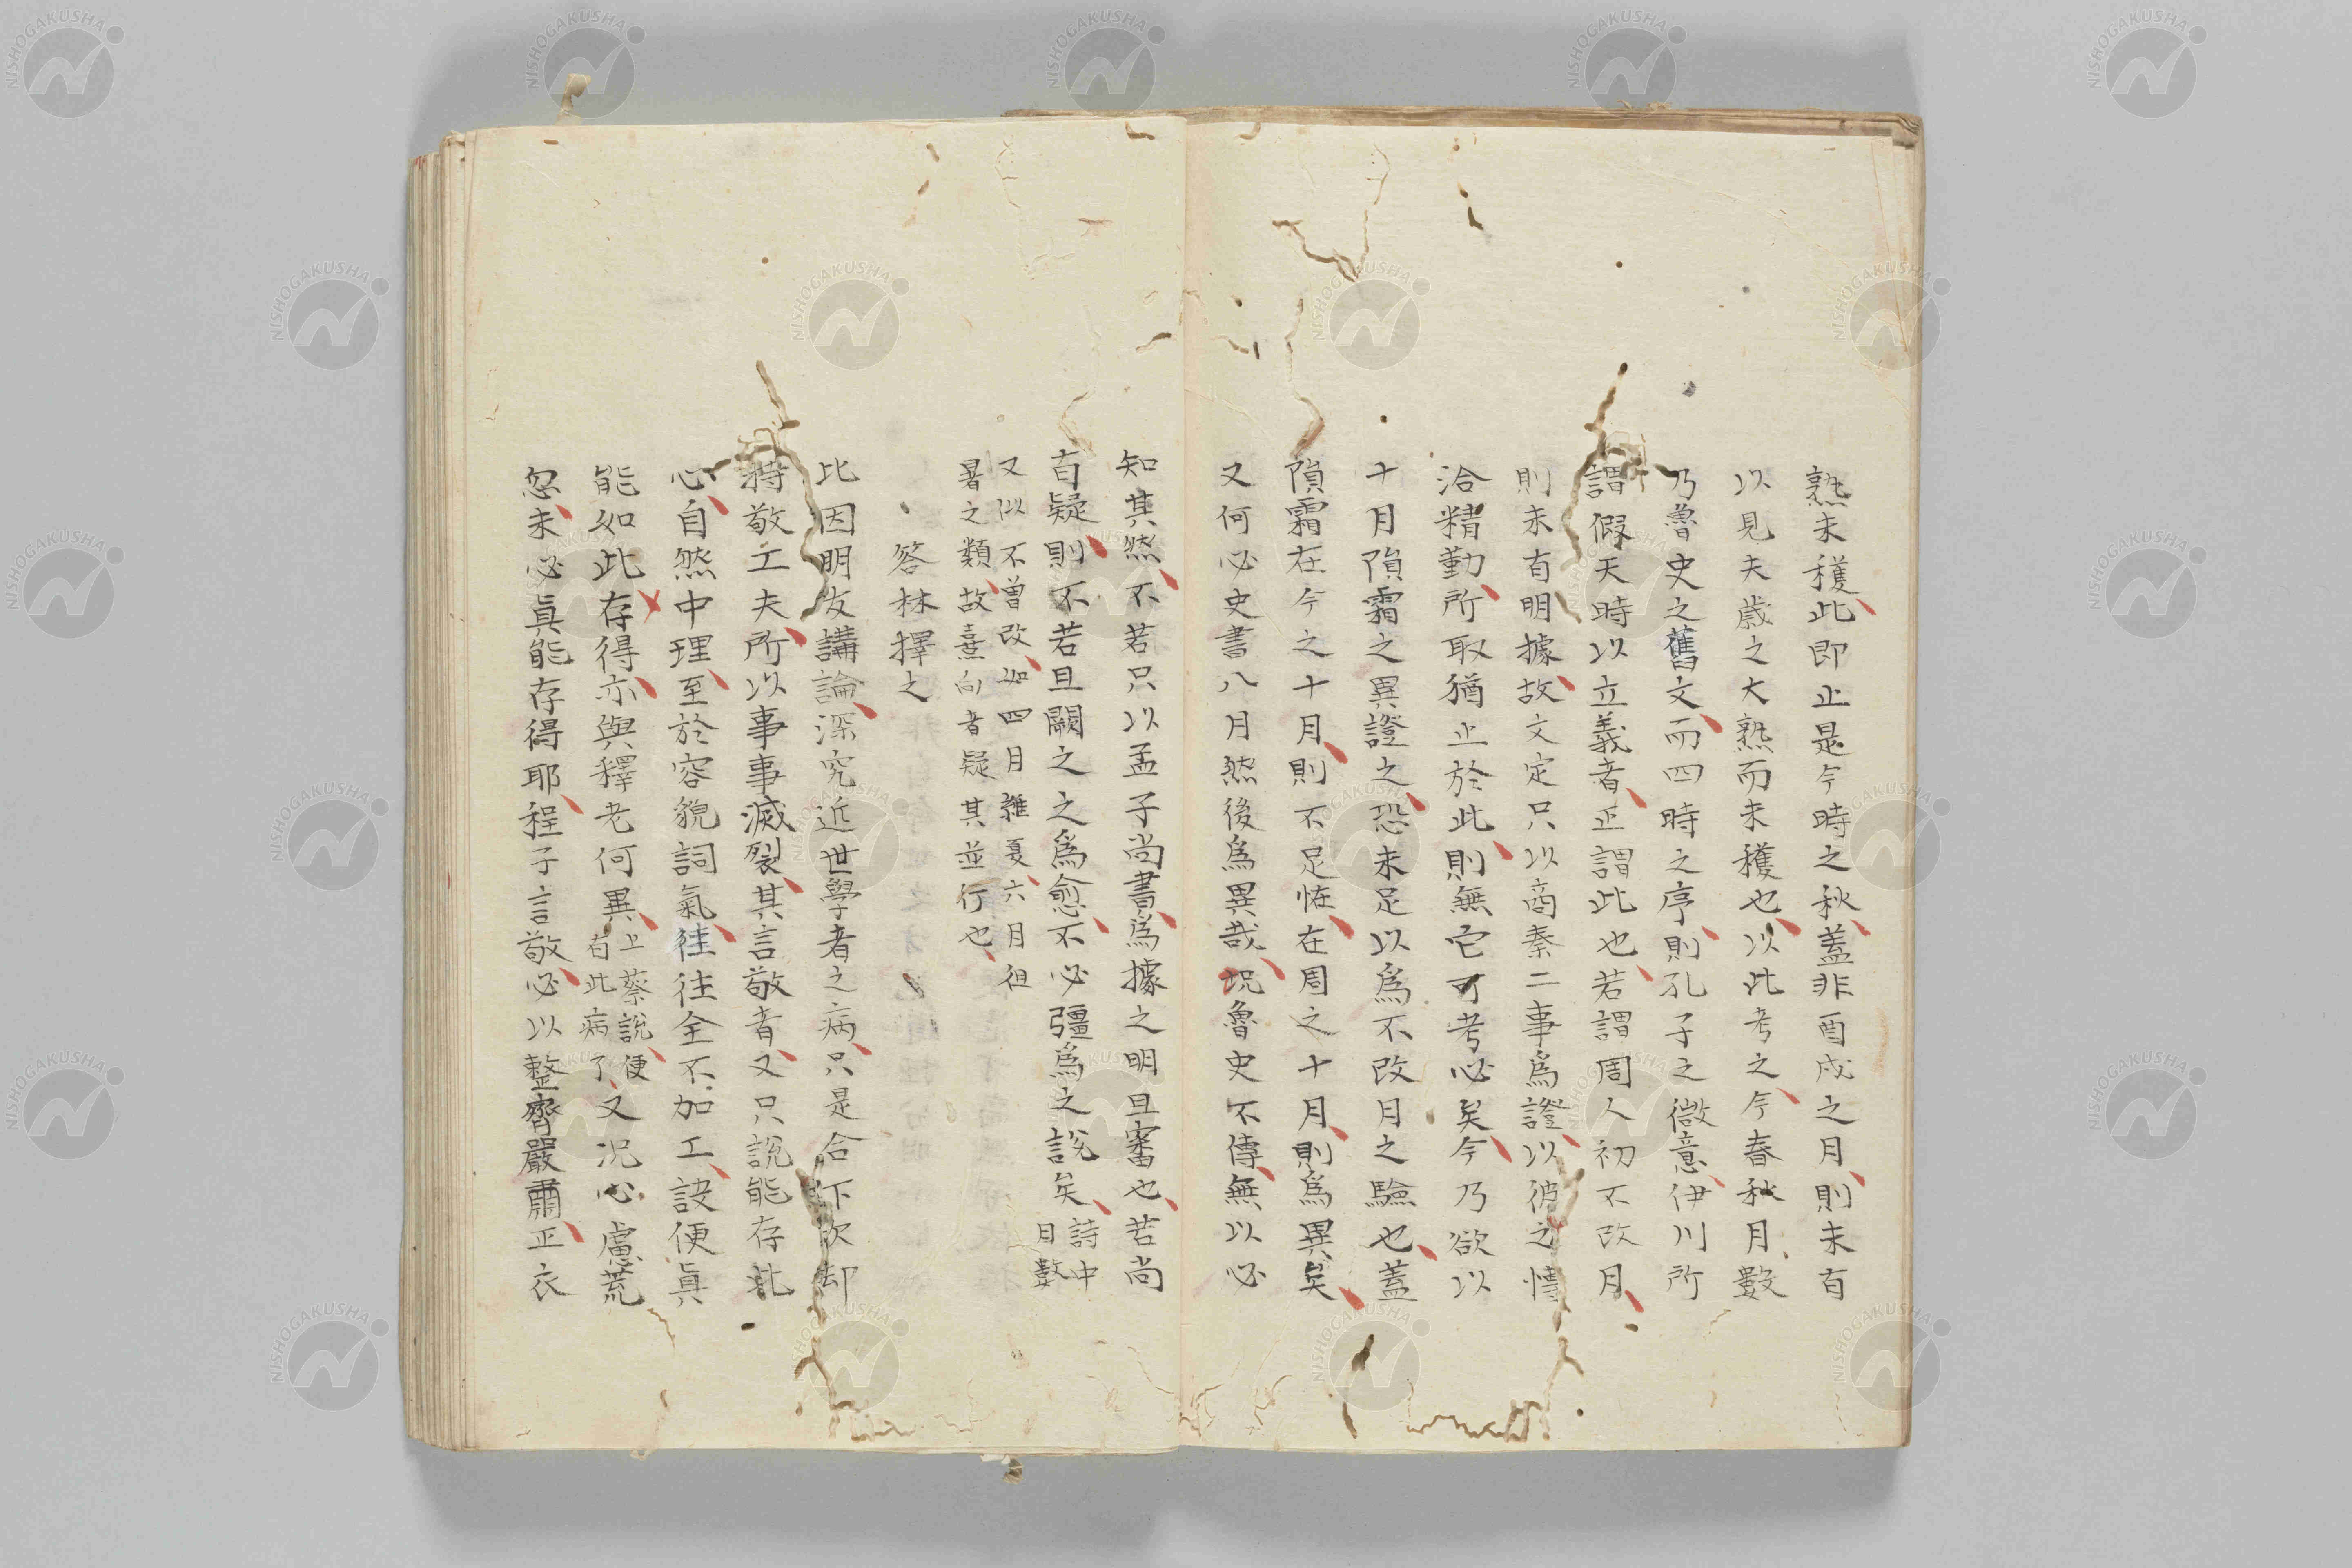 熟未穫此即止是今時之秋蓋非酉戌之月則未有
以見夫歳之大熟而未穫也以此考之今春秋月數
乃魯史之舊文而四時之序則孔子之微意伊川所
謂假天時以立義者正謂此也若謂周人初不改月
則未有明據故文定只以商秦二事爲證以彼之愽
洽精勤所取猶止於此則無它可考必矣今乃欲以
十月隕霜之異證之恐未足以爲不改月之驗也蓋
隕霜在今之十月則不足恠在周之十月則爲異矣
又何必史書八月然後爲異哉况魯史不傳無以必
知其然不若只以孟子尚書爲據之明且審也若尚
有疑則不若且闕之之爲愈不必彊爲之說矣
詩中
月數
又似不曾改如四月維夏六月徂
暑之類故熹向者疑其並行也
答林擇之
比因朋友講論深究近世學者之病只是合下欠却
持敬工夫所以事事滅裂其言敬者又只說能存此
心自然中理至於容貌詞氣徃徃全不加工設便眞
能如此存得亦與釋老何異
上蔡說便
有此病了
又况心慮荒
忽未必眞能存得耶程子言敬必以整齊嚴肅正衣
NISHOGAKUSHA